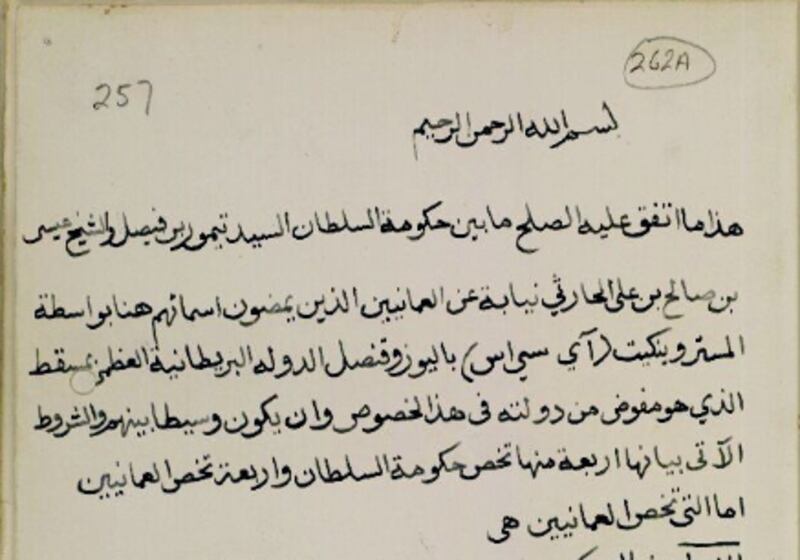 262A
257
بسم الله الرحمن الرحيم
هذا ما اتفق عليه الصلح ما بين حكومة السلطان السيد تيمور بن فيصل والشيخ عيسى
بن صالح بن علي الحارثي نيابة عن العمانيين الذين يمضون اسمائهم هنا بواسطة
المستر وينكيت (آي سي اس) باليوز وقنصل الدوله البريطانية العظمى بمسقط
الذي هو مفوض من دولته في هذا الخصوص وان يكون وسيطا بينهم والشروط
الآتى بيانها اربعة منها تخص حكومة السلطان واربعة تخص العمانيين
اما التى تخص العمانيين هى